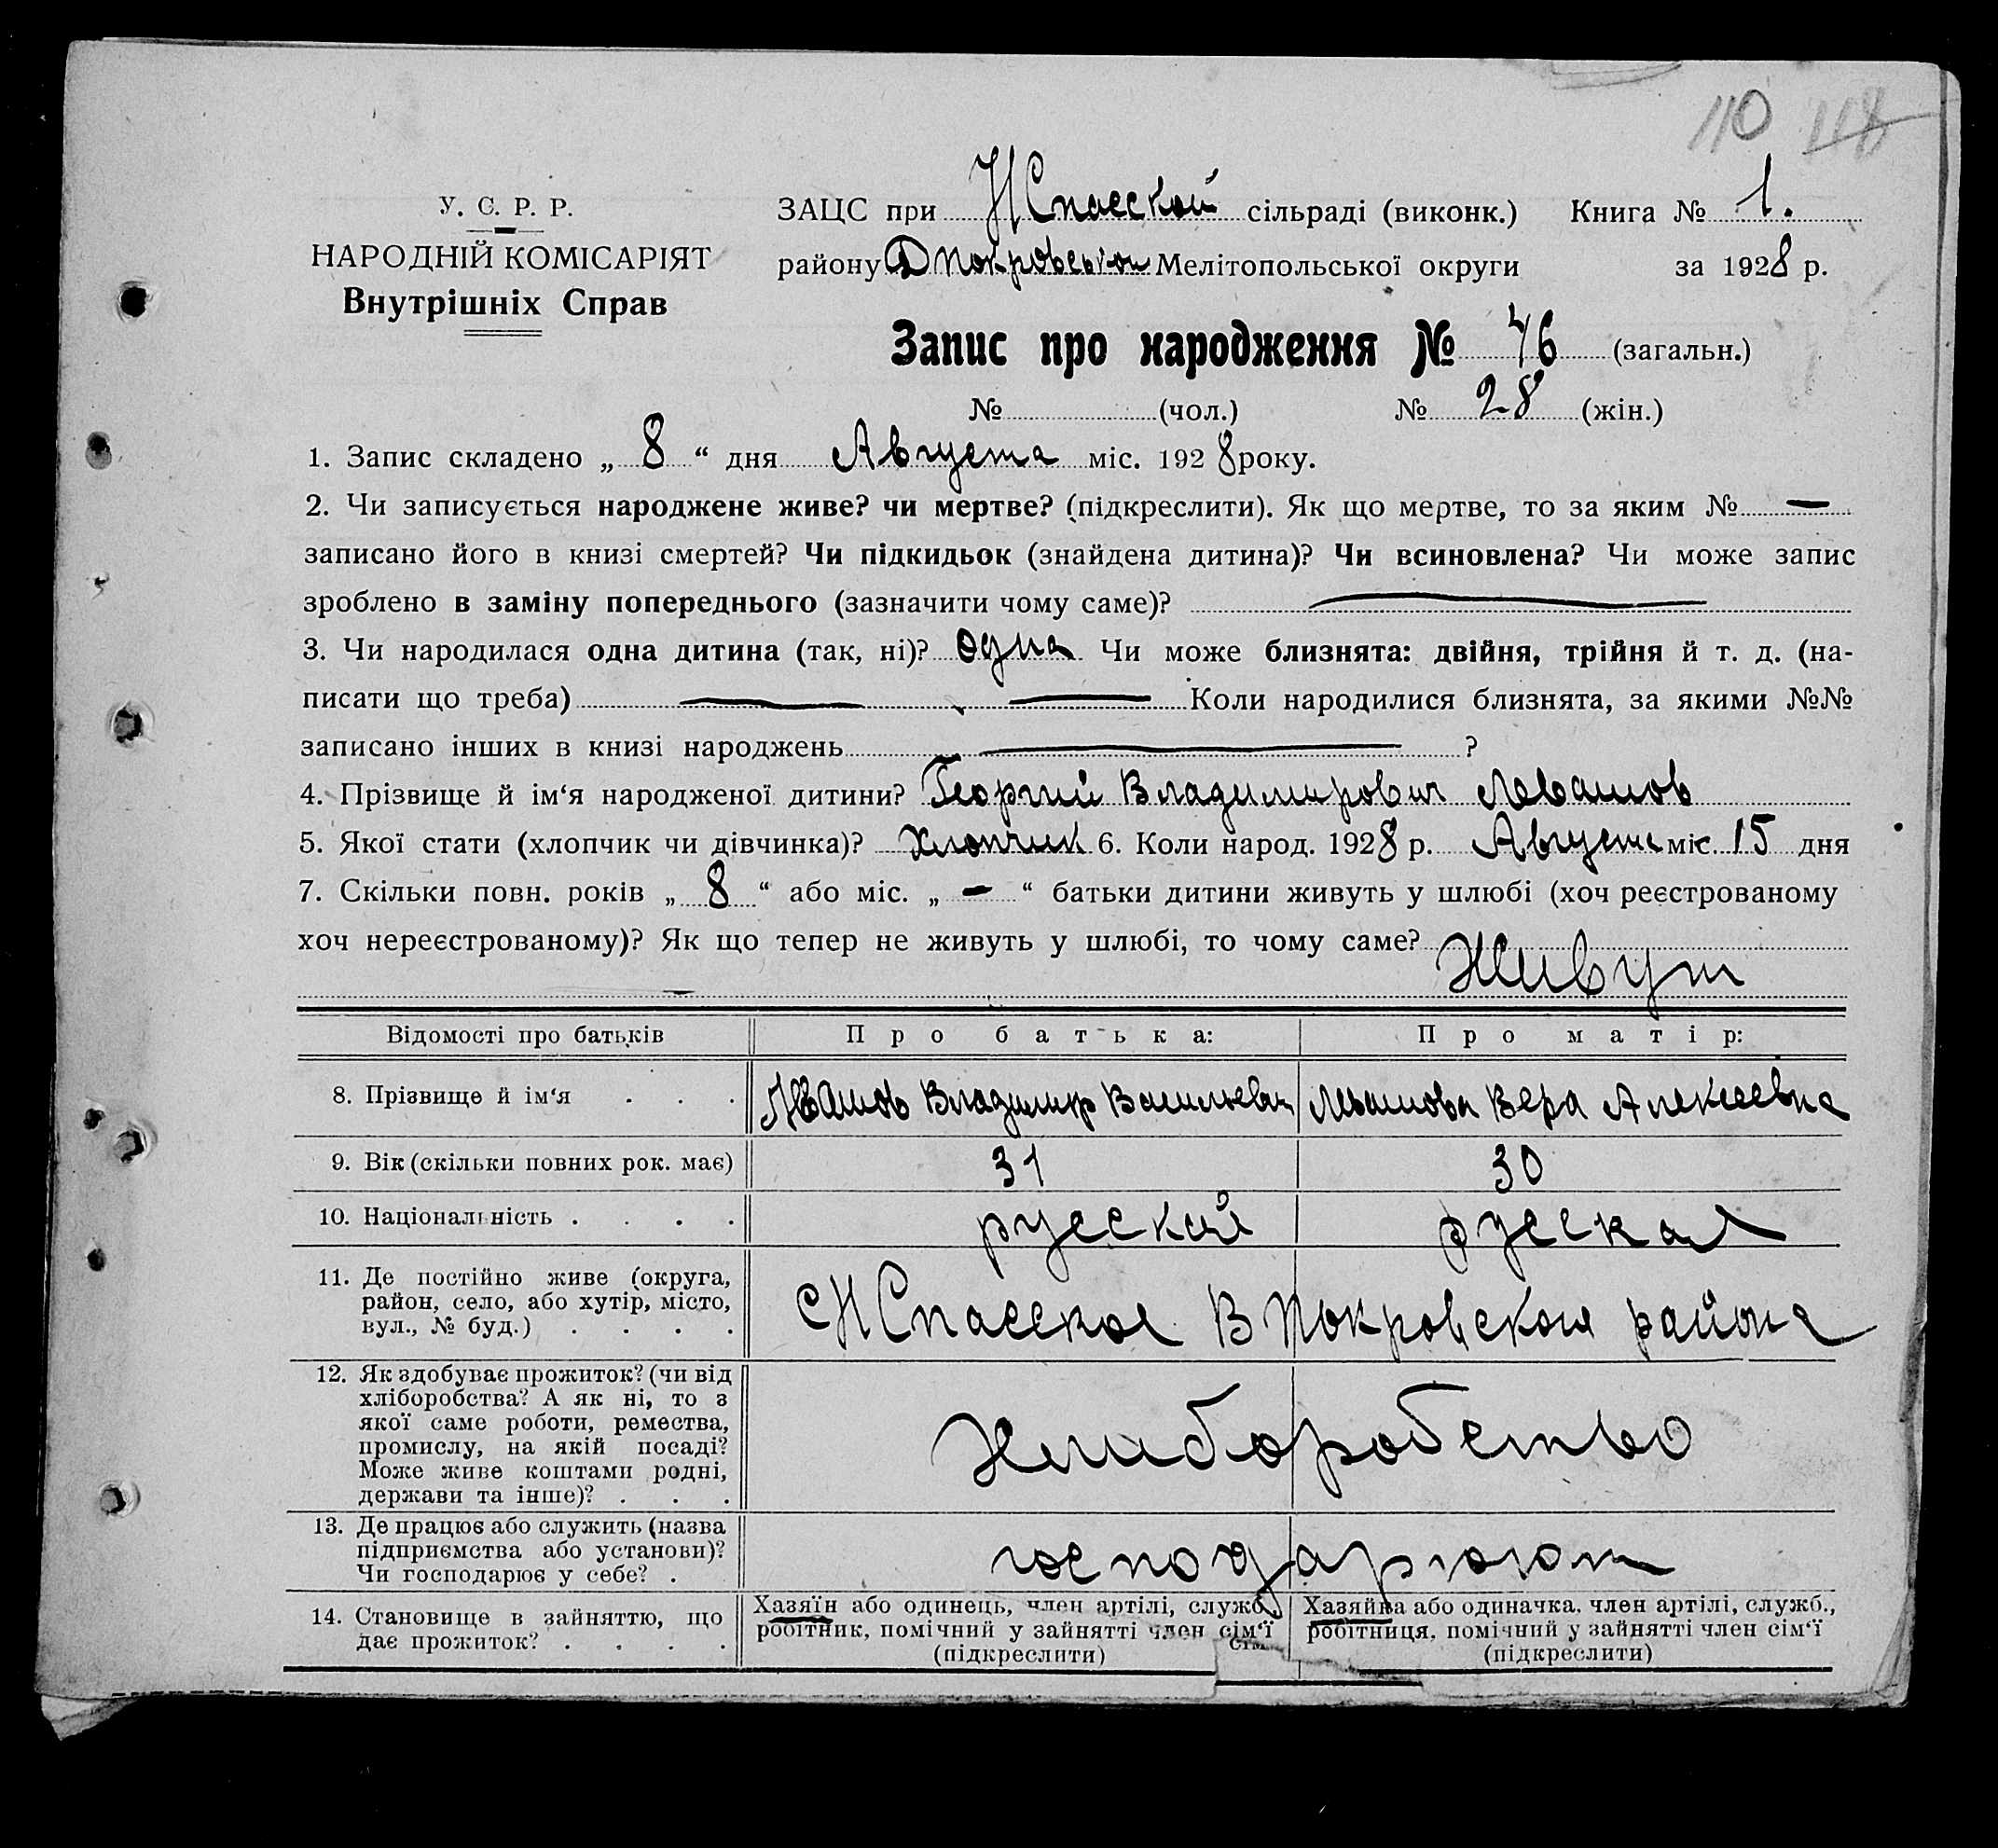 110 118
У. С. Р. Р.
НАРОДНІЙ КОМІСАРІЯТ
Внутрішніх Справ
ЗАЦС при НСпасской сільраді (виконк.) Книга № 1.
району Мелітопольської округи за 1928 р.
Запис про народження № 46 (загальн.)
№ (чол.) № 28 (жін.)
1. Запис складено „ 8 “ дня Августа міс. 1928 року.
2. Чи записується народжене живе? чи мертве? (підкреслити). Як що мертве, то за яким № —
записано його в книзі смертей? Чи підкидьок (знайдена дитина)? Чи всиновлена? Чи може запис
зроблено в заміну попереднього (зазначити чому саме)? —
3. Чи народилася одна дитина (так, ні)? Одна Чи може близнята: двійня, трійня й т. д. (на-
писати що треба) — — Коли народилися близнята, за якими №№
записано інших в книзі народжень — ?
4. Прізвище й ім‘я народженої дитини? Георгий Владимирович Левашов
5. Якої стати (хлопчик чи дівчинка)? Хлопчик 6. Коли народ. 1928 р. Августа міс. 15 дня
7. Скільки повн. років „ 8 “ або міс. „ — “ батьки дитини живуть у шлюбі (хоч реєстрованому
хоч нереєстрованому)? Як що тепер не живуть у шлюбі, то чому саме?
Живут
Відомості про батьків Про батька: Про матір:
8. Прізвище й ім‘я . . . Левашов Владимир Васильевич Левашова Вера Алексеевна
9. Вік (скільки повних рок. має) 31 30
10. Національність . . . . русский русская
11. Де постійно живе (округа,
район, село, або хутір, місто,
вул., № буд.) . . . .
СНСпасское ВПокровского района
12. Як здобуває прожиток? (чи від
хліборобства? А як ні, то з
якої саме роботи, ремества,
промислу, на якій посаді?
Може живе коштами родні,
держави та інше)? . . .
Хлиборобство
13. Де працює або служить (назва
підприємства або установи)?
Чи господарює у себе? .
господарюют
14. Становище в зайняттю, що
дає прожиток? . . . .
Хазяїн або одинець, член артілі, служб.,
робітник, помічний у зайнятті член сім‘ї
(підкреслити)
Хазяйка або одиначка, член артілі, служб.,
робітниця, помічний у зайнятті член сім‘ї
(підкреслити)